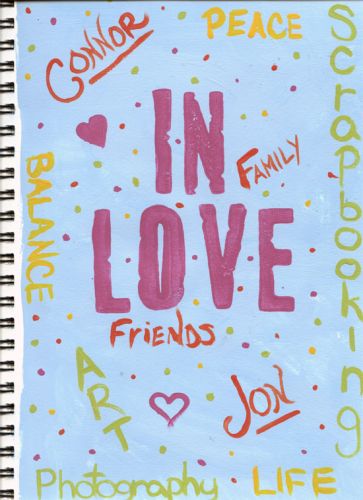 CONNOR
PEACE
Scrapbooking
IN
FAMILY
BALANCE
LOVE
FRIENDS
ART
JON
Photography
LIFE